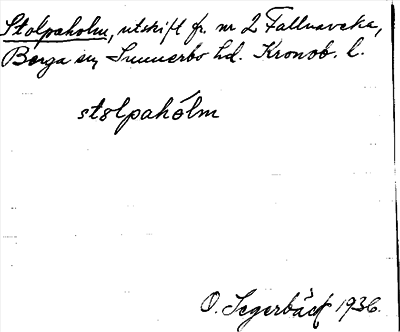 Stolpaholm, utskift fr. nr 2 Fallnaveka,
Berga sn, Sunnerbo hd. Kronob. l.
stolpahólm
O. Segerbäck 1936.